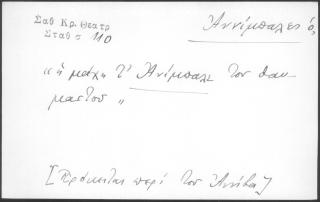 Σαθ Κρ. Θεατρ
Σταθ σ 110
Ἀννίμπαλες ὁ,
"ἡ μάχη τ' Ἀνίμπαλε του θαυ
μαστοῦ"
[Πρόκειται περὶ τοῦ Ἀννίβα]